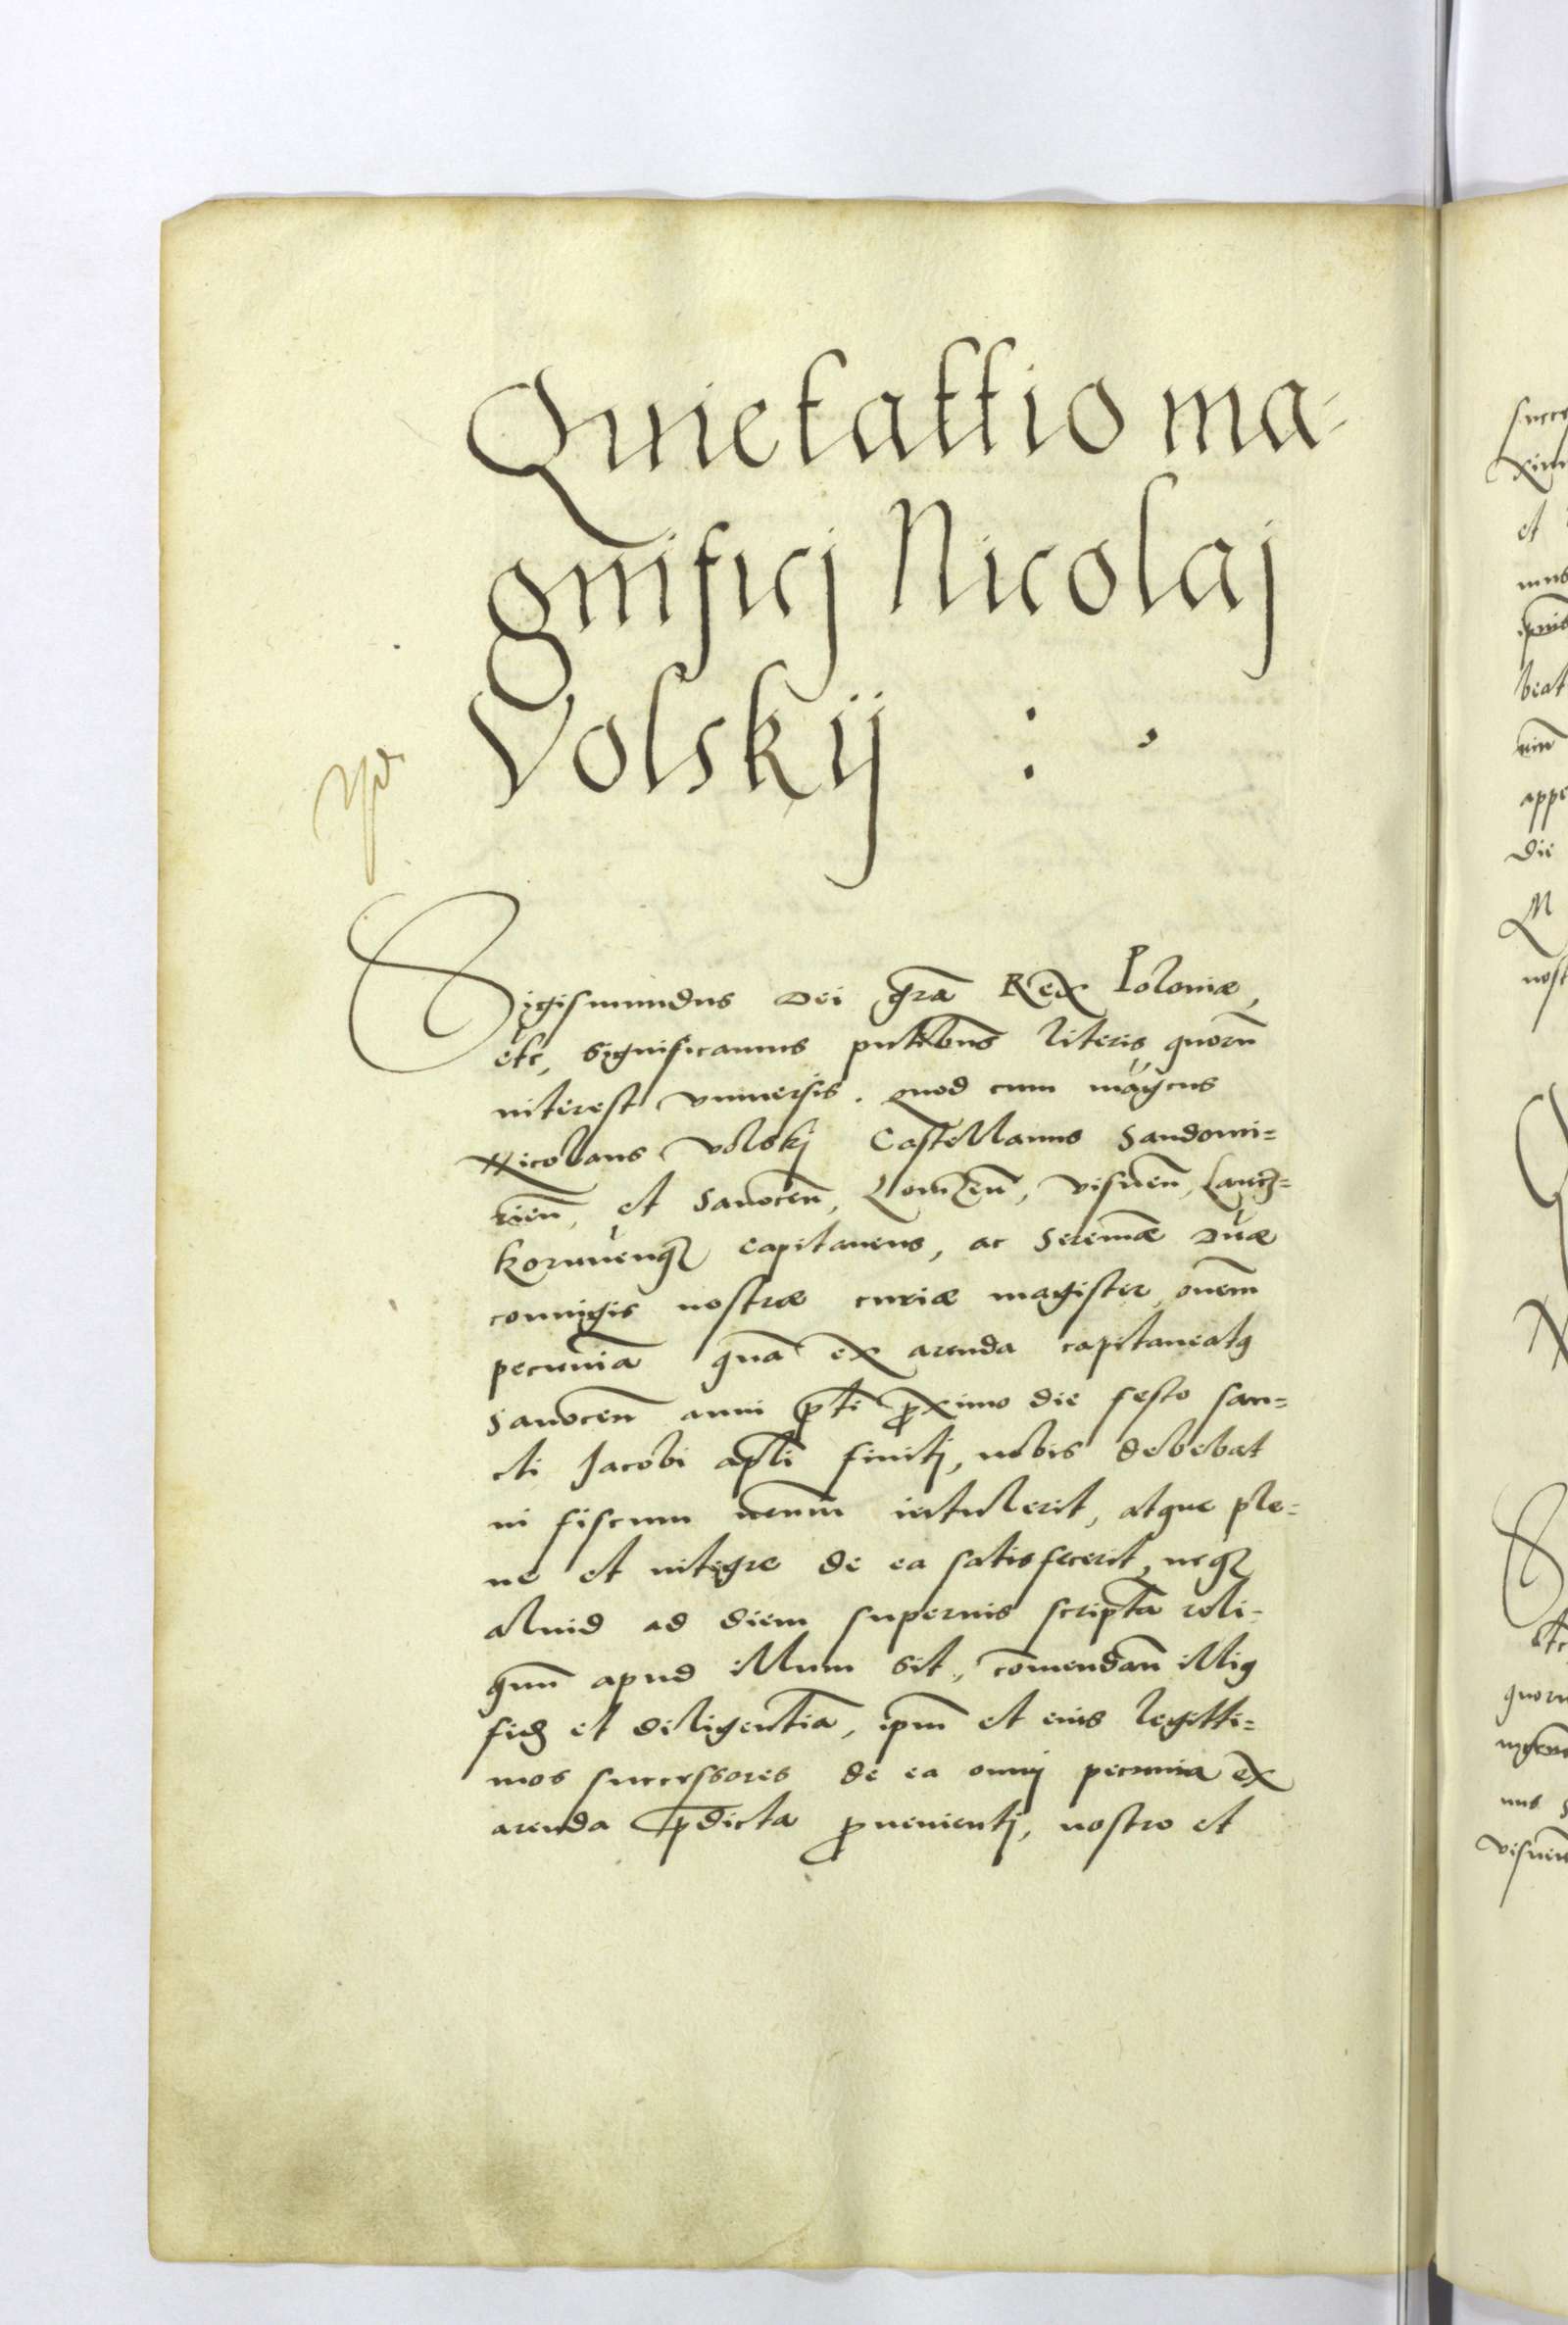 Quietattio ma-
gnificj Nicolaj
Volskij :  ,
Sigismundus Dei gr̃a Rex Poloniæ,
etc, significamus pñtibus literis, quorũ
interest vniuersis. Quod cum mãgcus
Nicolaus Volskj Castellanus Sandomi=
rien̄, et Sanocen̄, Lomzen̄, Visnen̄,
Capitaneus, ac Seremæ Duæ
coniugis nostræ curiæ magister, om̄em
pecuniã quã ex arenda capitaneatus
Sanocen̄ anni p̃ti p̃ximo die festo san=
cti Jacobi apl̃i finitj, nobis debebat
in fiscum nr̃um intulerit, atque ple=
ne et integre de ea satisfecerit, neqꝫ
aliuid ad diem superius scriptã reli=
quũ apud illum sit, com̄endan̄ illius
fidẽ et diligentiã, ipm̃ et eius legitti=
mos successores de ea omnj pecunia ex
arenda p̃dicta ꝓuenientj, nostro et
succes
et
beat
appe
Die
M
nost
etc
quoru